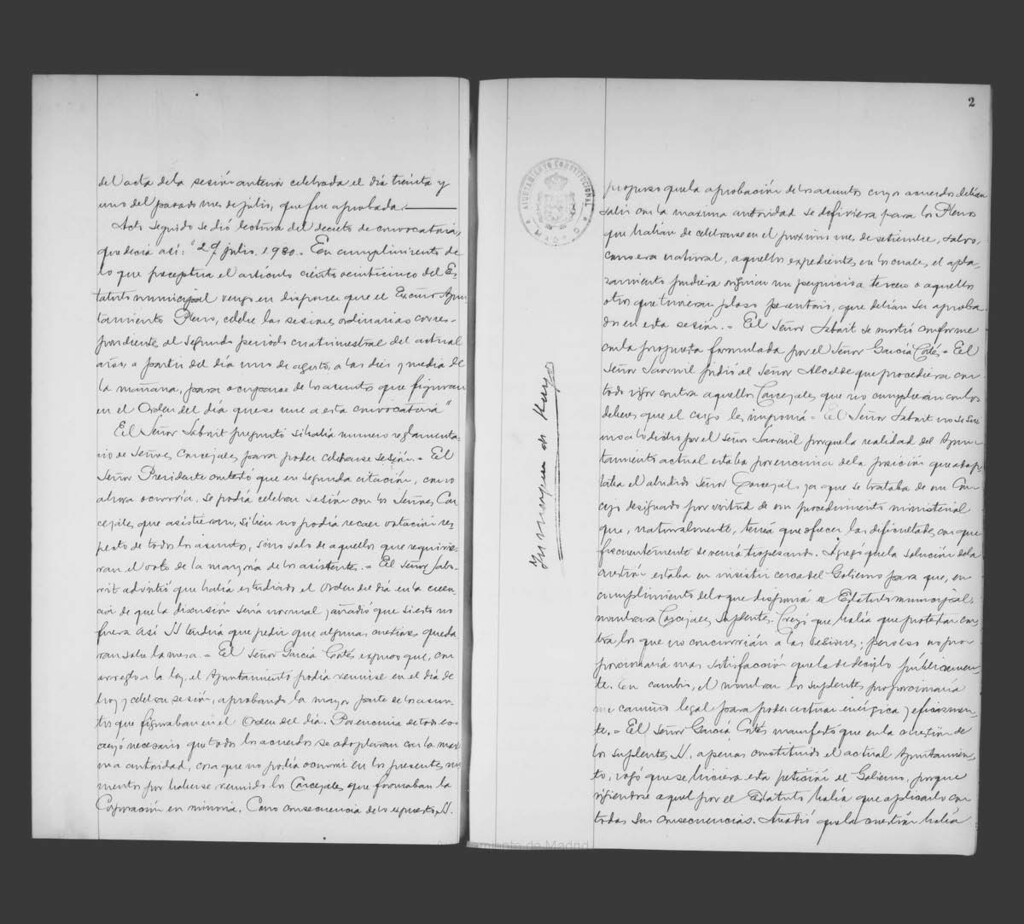 del acta de la sesión anterior celebrada el día treinta y
uno del pasado mes de julio, que fue aprobada.
Acto seguido se dió lectura del decreto de convocatoria,
que decía así: "29 julio 1930. En cumplimiento de
lo que preceptúa el artículo ciento veinticinco del Es-
tatuto municipal vengo en disponer que el Excmo. Ayun-
tamiento Pleno, celebre las sesiones ordinarias corres-
pondientes al segundo período cuatrimestral del actual
año, a partir del día uno de agosto, a las diez y media de
la mañana, para ocuparse de los asuntos que figuran
en el Orden del día que se une a esta convocatoria"
El Señor Saborit preguntó si había número reglamenta-
rio de Señores Concejales para poder celebrarse sesión. = El
Señor Presidente contestó que en segunda citación, como
ahora ocurría, se podía celebrar sesión con los Señores Con-
cejales que asistieran, si bien no podía recaer votación res-
pecto de todos los asuntos, sino solo de aquellos que requirie-
ran el voto de la mayoría de los asistentes. = El Señor Sabo-
rit advirtió que había estudiado el Orden del día en la creen-
cia de que la discusión sería normal y añadió que si esto no
fuera así S.S. tendría que pedir que algunas cuestiones queda-
ran sobre la mesa. = El Señor García Cortés expresó que, con
arreglo a la ley, el Ayuntamiento podía reunirse en el día de
hoy y celebrar sesión, aprobando la mayor parte de los asun-
tos que figuraban en el Orden del día. Por encima de todo eso
creyó necesario que todos los acuerdos se adoptaran con la máxi-
ma autoridad, cosa que no podía ocurrir en los presentes mo-
mentos por haberse reunido los Concejales que formaban la
Corporación en minoría. Como consecuencia de lo expuesto, S.S.
2
AYUNTAMIENTO CONSTITUCIONAL
MADRID
propuso que la aprobación de los asuntos cuyos acuerdos debían
salir con la máxima autoridad se defiriera para los Plenos
que habían de celebrarse en el próximo mes de setiembre, salvo,
como era natural, aquellos expedientes en los cuales el apla-
zamiento pudiera originar un perjuicio a tercero o aquellos
otros que tuvieran plazo perentorio, que debían ser aproba-
dos en esta sesión. = El Señor Saborit se mostró conforme
con la propuesta formulada por el Señor García Cortés. = El
Señor pidió al Señor Alcalde que procediera con
todo rigor contra aquellos Concejales que no cumplieran con los
deberes que el cargo les imponía. = El Señor Saborit no se su-
mó a lo dicho por el Señor porque la realidad del Ayun-
tamiento actual estaba por encima de la posición que adop-
taba el aludido Señor Concejal, ya que se trataba de un Con-
cejo designado por virtud de un procedimiento ministerial
que, naturalmente, tenía que ofrecer las dificultades con que
frecuentemente se venía tropezando. Agregó que la solución de la
cuestión estaba en insistir cerca del Gobierno para que, en
cumplimiento de lo que disponía el Estatuto municipal,
nombrara Concejales suplentes. Creyó que había que protestar con-
tra los que no concurrían a las sesiones; pero eso no pro-
porcionaría mas satisfacción que la de decirlo públicamen-
te. En cambio, el nombrar los suplentes proporcionaría
un camino legal para poder actuar enérgica y eficazmen-
te. = El Señor García Cortés manifestó que en la cuestión de
los suplentes S.S. apenas constituído el actual Ayuntamien-
to, rogó que se hiciera esta petición al Gobierno, porque
rigiéndose aquel por el Estatuto había que aplicarlo con
todas sus consecuencias. Añadió que la cuestión había